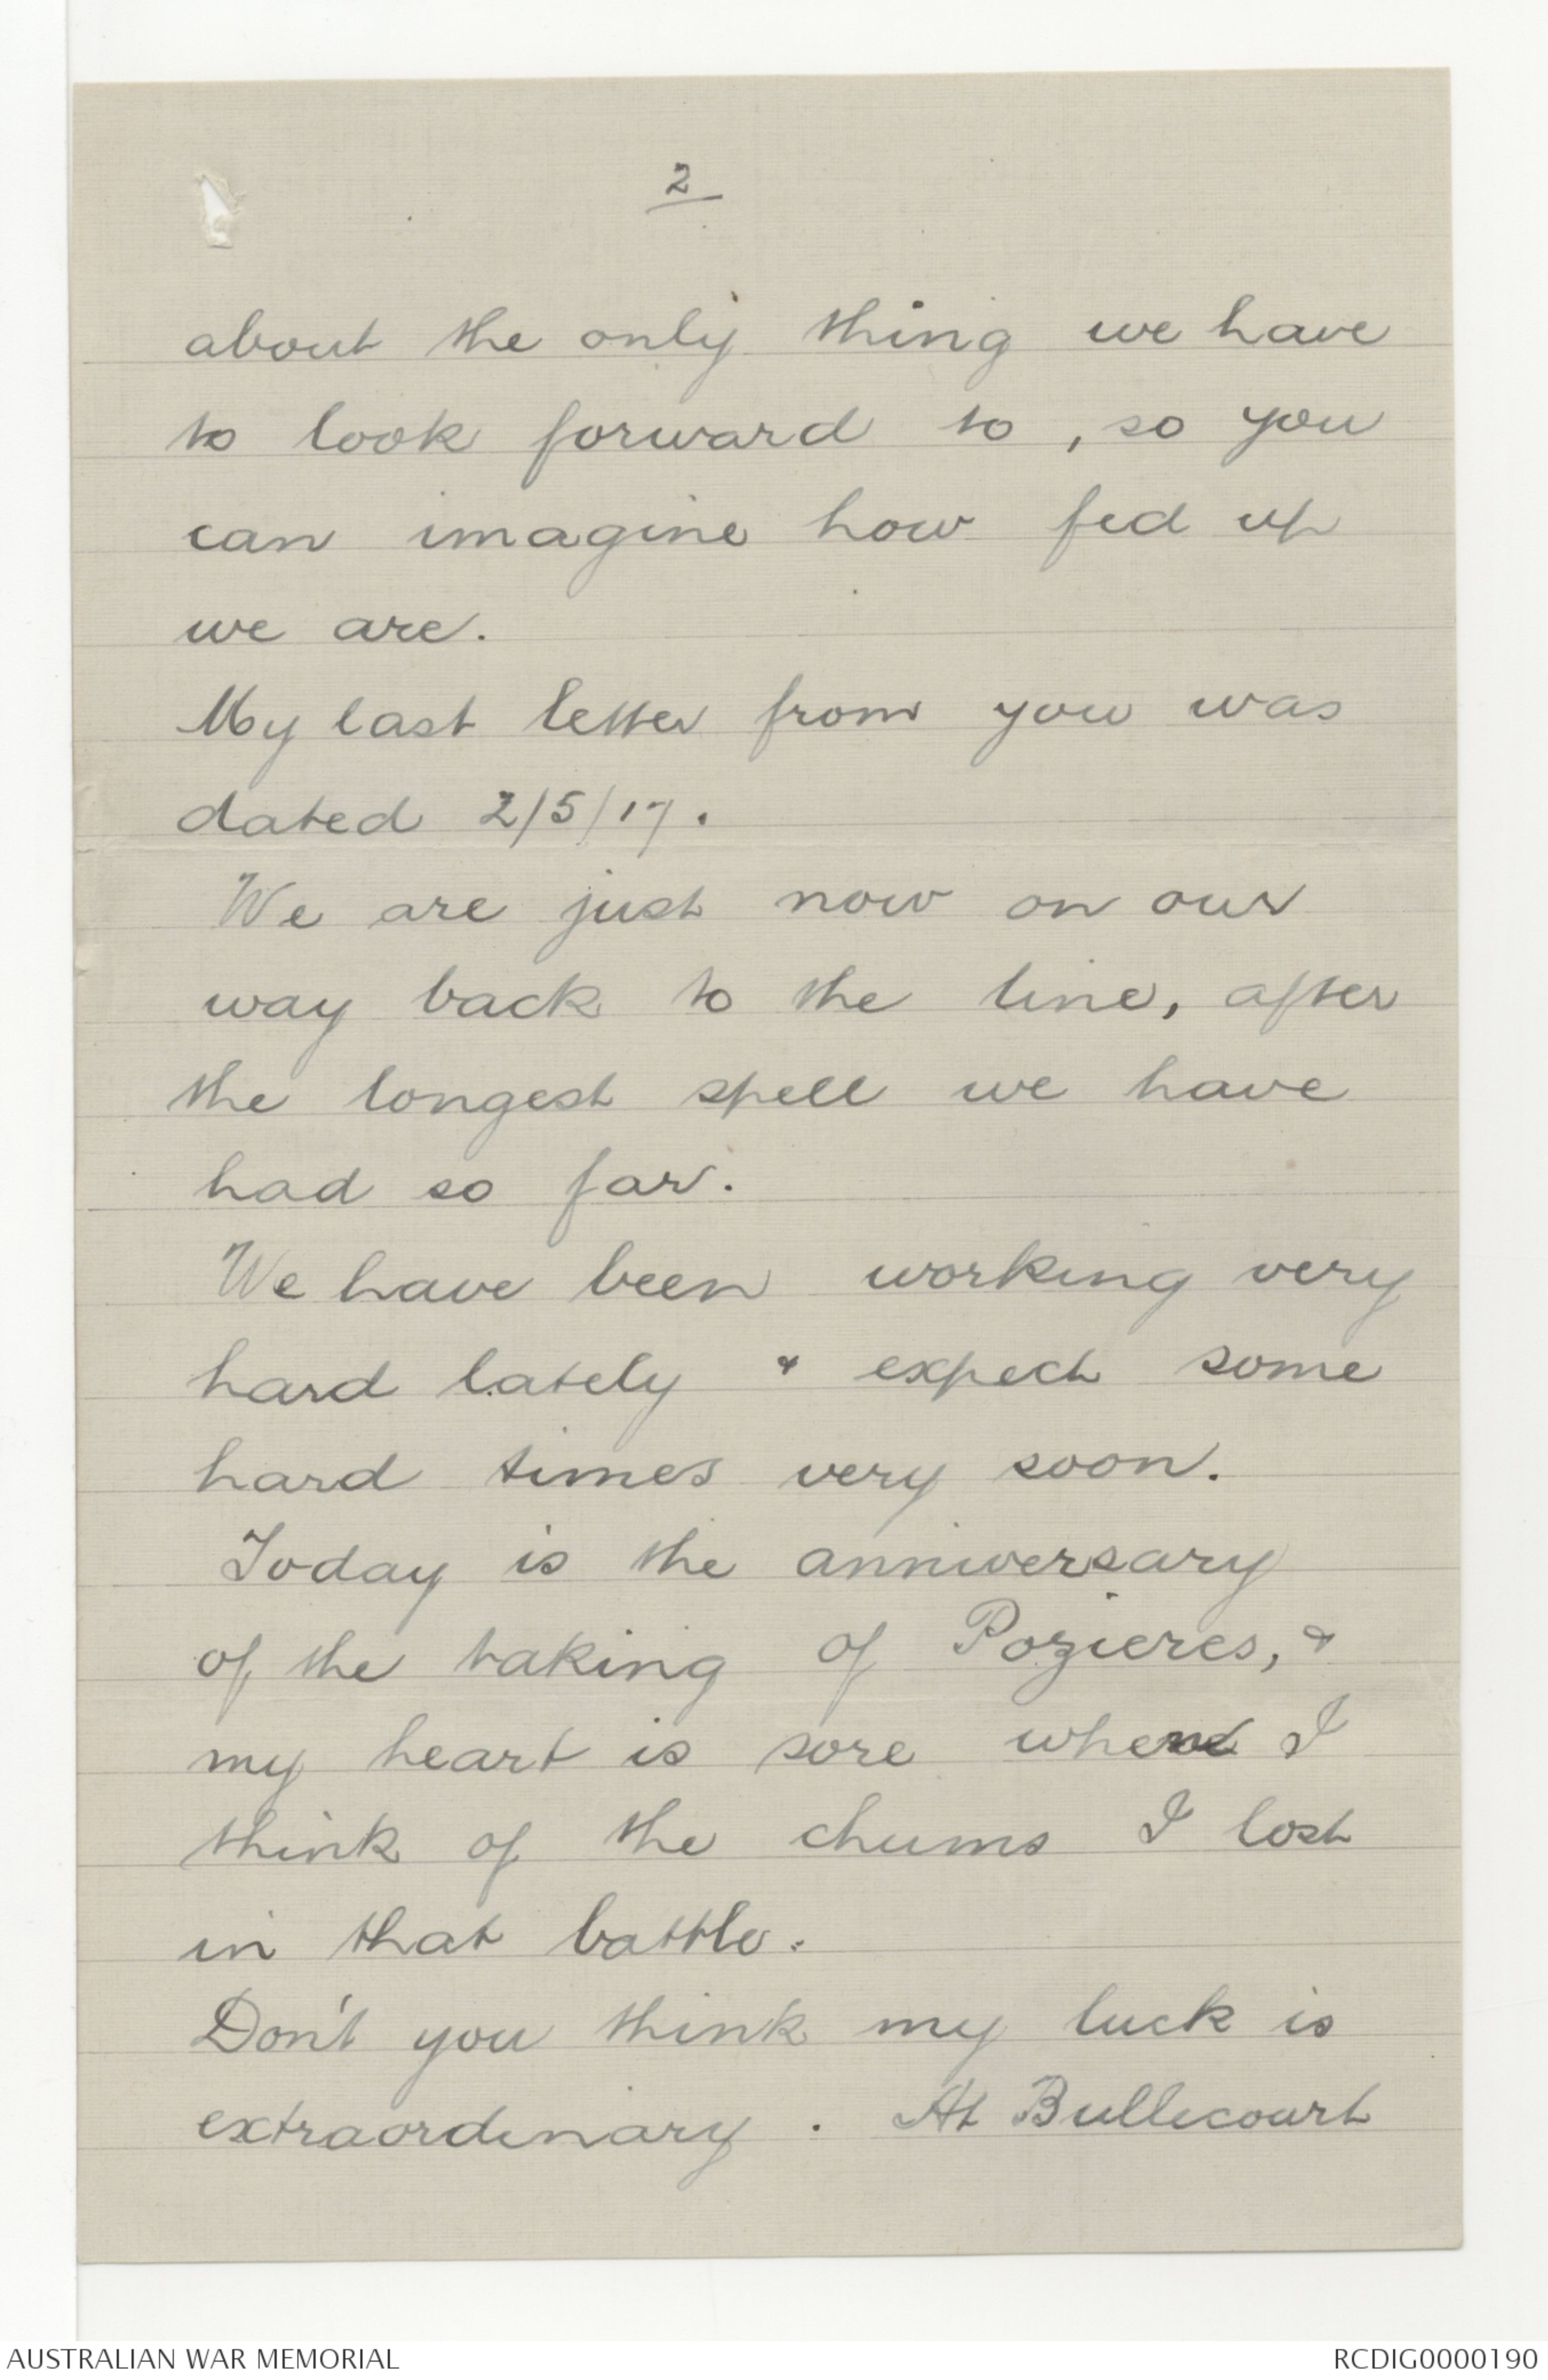 2
about the only thing we have
to look forward to, so you
can imagine how fed up
we are.
My last letter from you was
dated 2/5/17.
We are just now on our
way back to the line, after
the longest spell we have
had so far.
We have been working very
hard lately & expect some
hard times very soon.
Today is the anniversary
of the taking of Pozieres, &
my heart is sore when I
think of the chums I lost
in that battle.
Don't you think my luck is
extraordinary. At Bullecourt
AUSTRALIAN WAR MEMORIAL
RCDIG0000190